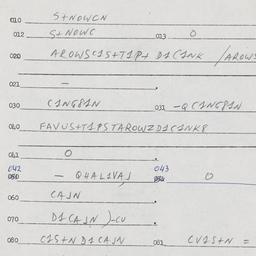 010 S+NOWCN
012 S+NOWC 013 O
020 AROWSC1S+T1P+ D1C1NK / AROWS
021 -
030 C1NG81N 031 -QC1NG81N
040 FAVUS+T1PSTAROWZD1C1NK8
041 O
042 043
050 - QUAL1VAJ O
060 CAJN
070 D1(AJN)-CU
080 C1S+N D1CAJN 081 CV1S+N =